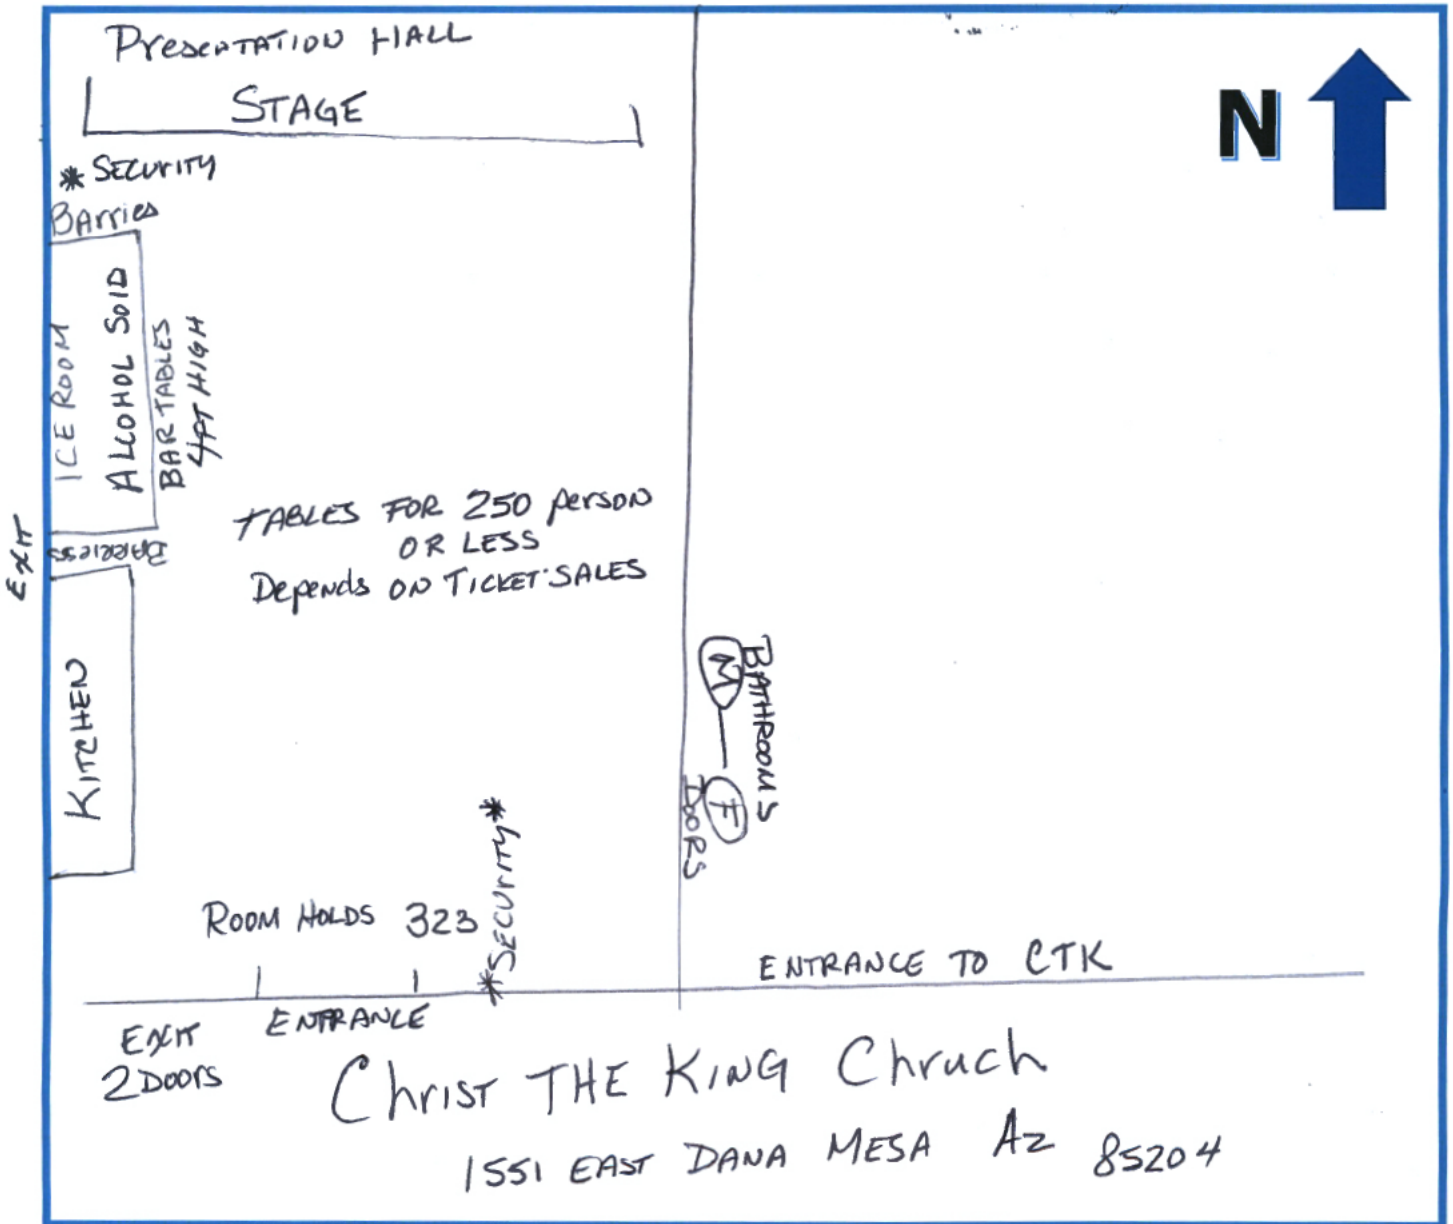 Presentation Hall
STAGE
N
* SECURITY
Barries
ICE ROOM
ALCOHOL SOLD
BAR TABLES
4FT HIGH
EXIT
BARRIESS
TABLES FOR 250 person
OR LESS
Depends ON TICKET SALES
KITCHEN
M
BATHROOMS
F
DOORS
*SECURITY*
ROOM HOLDS 323
ENTRANCE TO CTK
EXIT
2 DOORS
ENTRANCE
Christ THE KING Chruch
1551 EAST DANA MESA AZ 85204